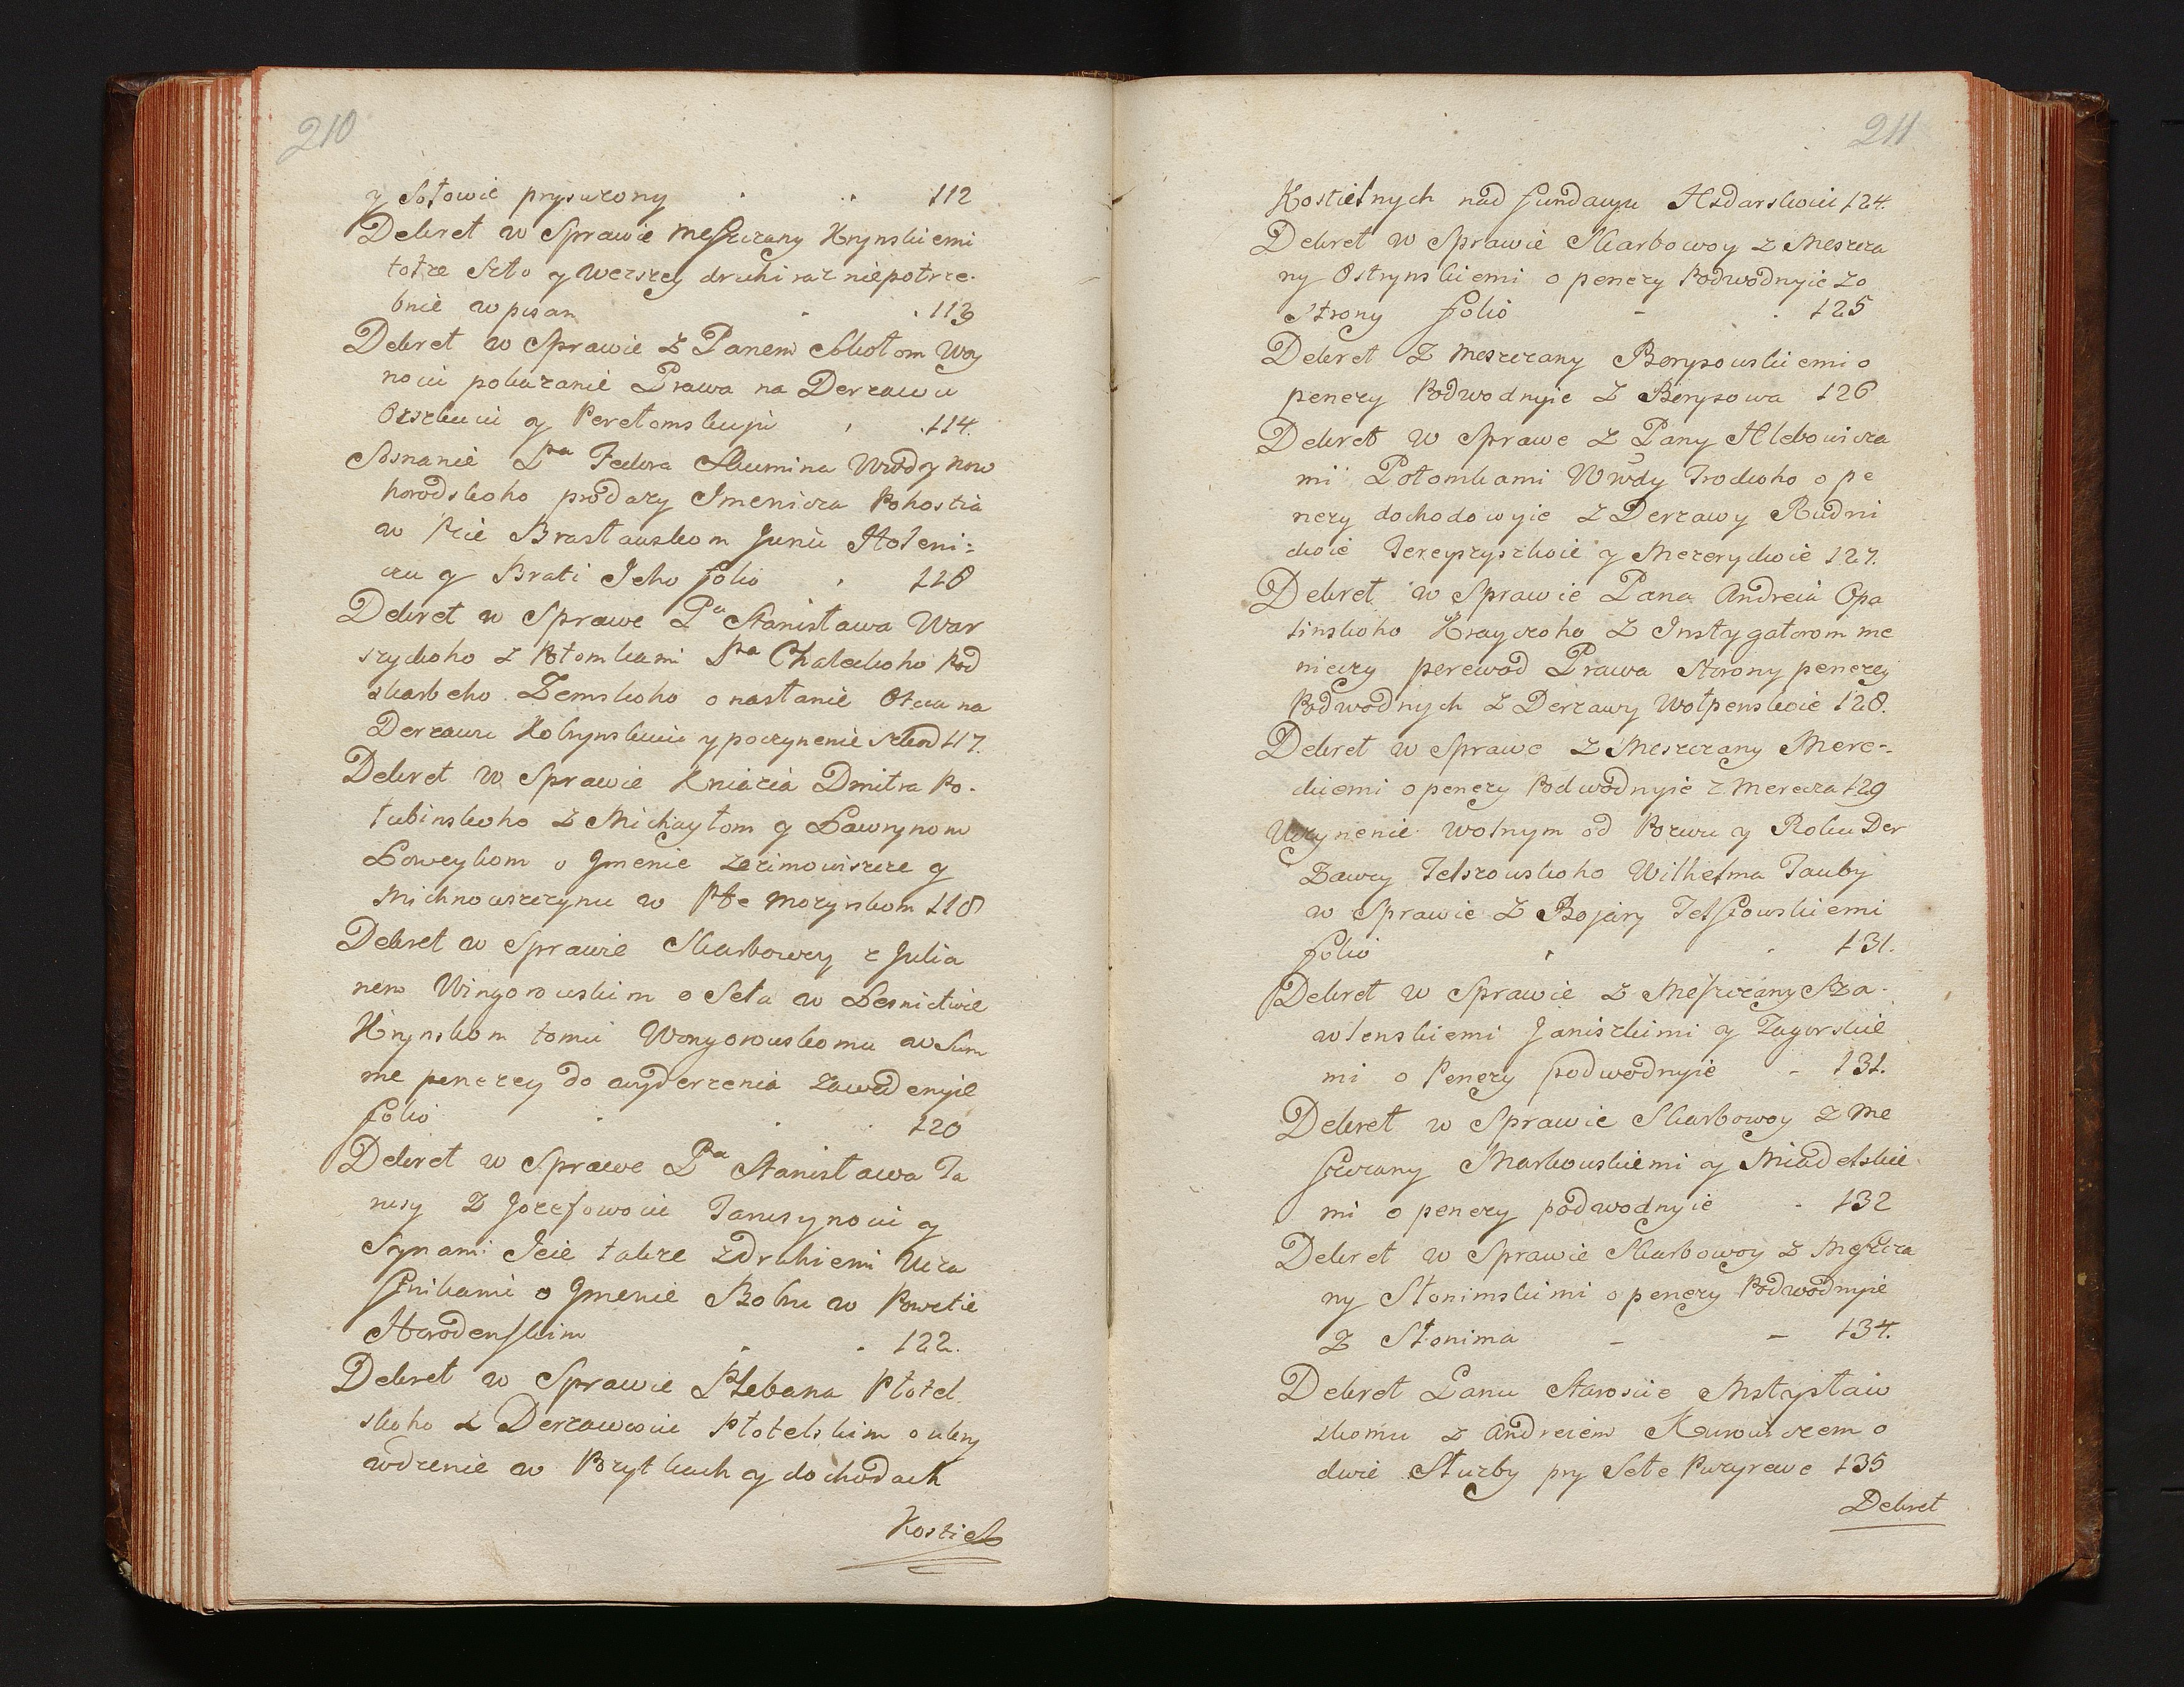 210
y Sołowie prysuzony 112
Dekret w Sprawie Meszczany Krynskiemi
totże Szto y Werszey druhi raz niepotrze-
bnie wpisan 113
Dekret w Sprawie z Panem Mikołom Woy
noiu pokazanie Prawa na Derzawu
y Perełomskuju 114.
Soznanie Pna Fedora Skumina Wwody Now
horodskoho prodazy Imenicza Pohostia
w Pcie Brasławskom Juriu Hołeni-
czu y Brati Jeho folio 116
Dekret w Sprawe Pa Stanisława War
szyckoho z Potomkami Pna Chaleckoho Pod
skarbeho Zemskoho o nasłanie Otcu na
Derzawu Kobrynskuiu y poczynenie szkod 117.
Dekret w Sprawie Kniazia Dmitra Po-
łubinskoho z Michayłom y Ławrynom
Łoweykom o Jmenie Zezimowiszcze y
Michnowszczynu w Pte Mozyrskom 118
Dekret w Sprawie Skarbowey z Julia
nem Wingorowskim o Seła w Lesnictwie
Krynskom tomu Wonyorowskomu w Sum
me penezey do wyderzenia zawedenyie
folio 120
Dekret w Sprawe Pa Stanisława Ta
rusy z Jozefowoiu Tarusynoiu y
Synami Jeie także zdruhiemi Ucza
stnikami o Jmenie Bobru w Powetie
Horodenskim 122.
Dekret w Sprawie Plebana Płotel
skoho z Derzawcoiu Płotelskim o ukry
wdzenie w Pozytkach y dochodach
Kostieł
211
Kostielnych nad fundacyu Hsdarskoiu 124.
Dekret w Sprawie Skarbowoy z Meszcza
ny Ostrynskiemi o penezy Podwodnyie zo
Strony folio 125
Dekret z Meszczany Borysowskiemi o
penezy Podwodnyie z Borysowa 126
Dekret w Sprawe z Pany Hlebowicza
mi Potomkami Wwdy Trockoho o pe
nezy dochodowyie z Derzawy Rudni
ckoie y Mezeryckoie 127.
Dekret w Sprawie Pana Andreia Opa
linskoho Krayczoho z Instygatorom me
niaczy perewod Prawa Storony penezey
Podwodnych z Derzawy Wołpenskoie 128.
Dekret w Sprawe z Meszczany Mere-
ckiemi o penezy Podwodnyie z Merecza 129
Uczynenie wolnym od Pozwu y Roku Der
zawcy Telszowskoho Wilhelma Tauby
w Sprawie z Bojary Telszowskiemi
folio 131.
Dekret w Sprawie z Meszczany Sza-
wlenskiemi Janiszkimi y Zagorskie
mi o Penezy podwodnyie 131.
Dekret w Sprawie Skarbowoy z Me
szczany Markowskiemi y Miadelskie
mi o penezy podwodnyie 132
Dekret w Sprawie Skarbowoy z Meszcza
ny Słonimskimi o penezy Podwodnyie
z Słonima 134.
Dekret Panu Staroscie Mstysław
skomu z Andreiem Kurowiczem o
dwie Służby pry Sele Puzyrewe 135
Dekret